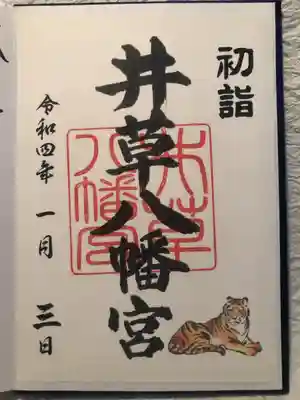 初詣
井草八幡宮
井草
八幡宮
令和四年 一月 三日